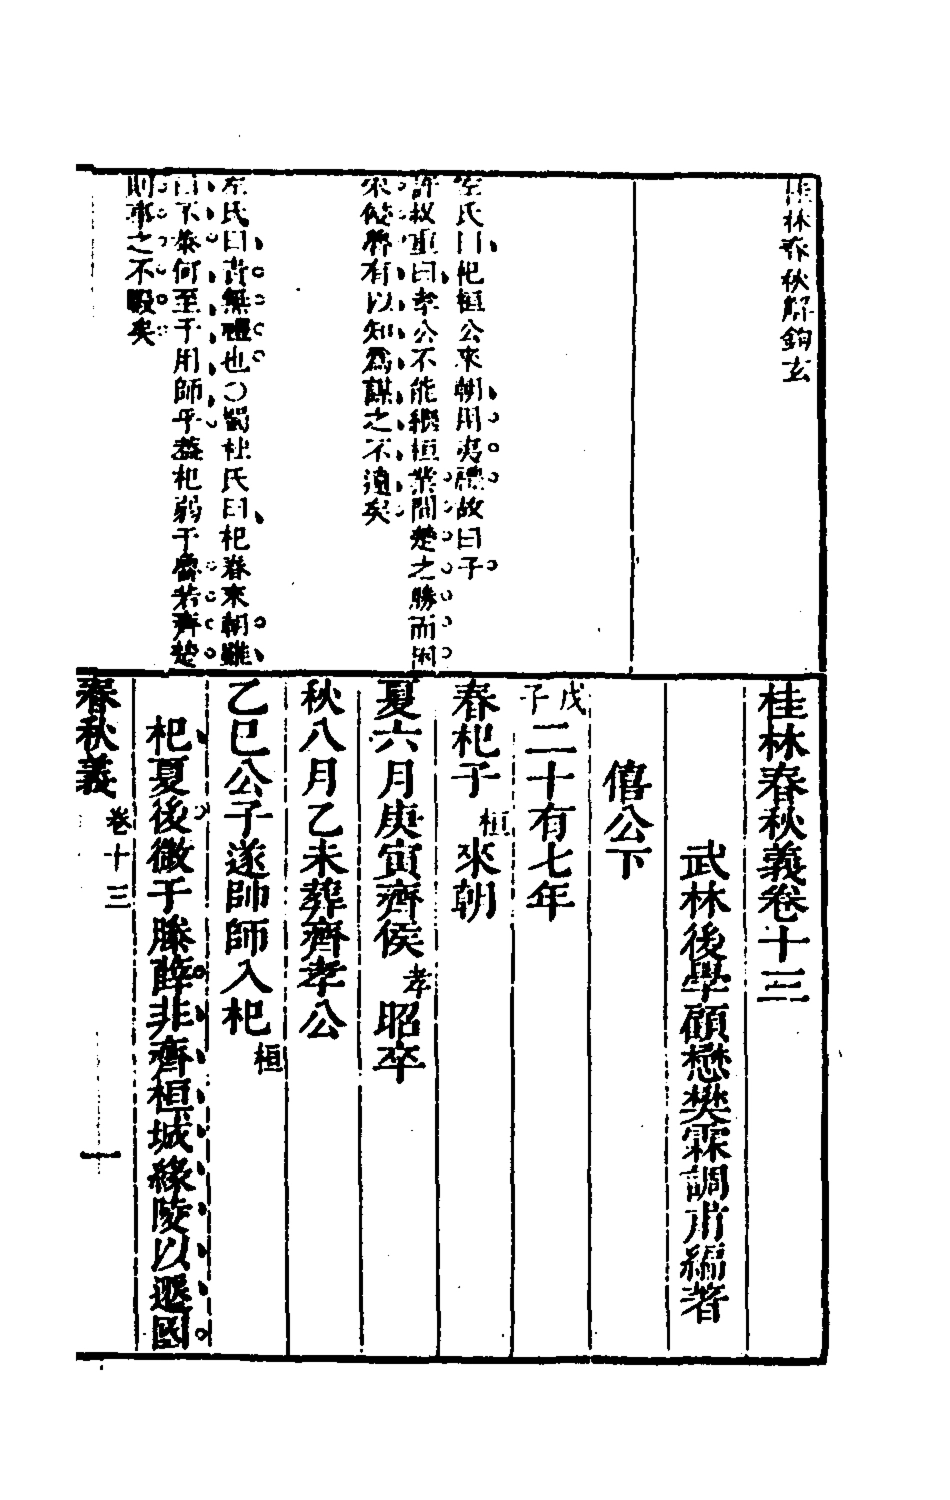 桂林春秋解鉤玄
左氏曰杞桓公來朝用夷禮故曰子
許叔重曰孝公不能繼桓業間楚之勝而困
宋侵齊有以知爲謀之不遠矣
左氏曰責無禮也○蜀杜氏曰杞春來朝雖
曰不恭何至于用師乎蓋杞弱于魯若齊楚
則事之不暇矣
桂林春秋義卷十三
武林後學顧懋樊霖調甫編著
僖公下
戊子二十有七年
春杞子桓來朝
夏六月庚寅齊侯孝昭卒
秋八月乙未葬齊孝公
乙巳公子遂帥師入杞桓
杞夏後微于滕薛非齊桓城緣陵以遷國
春秋義 卷十三 一